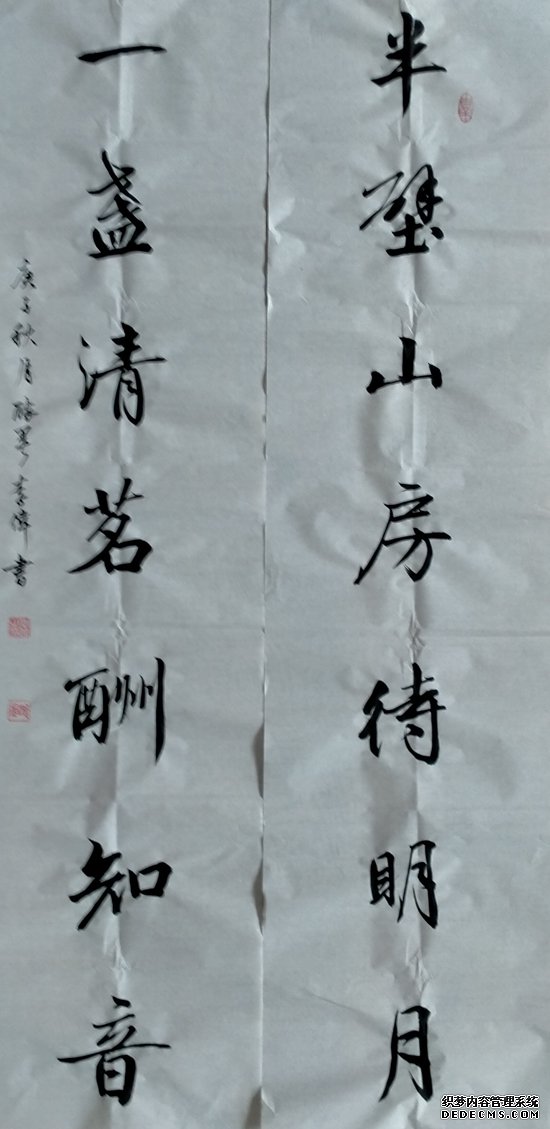 半壁山房待明月
一盏清茗酬知音
庚子秋月 李伟书
织梦内容管理系统
DEDECMS.COM